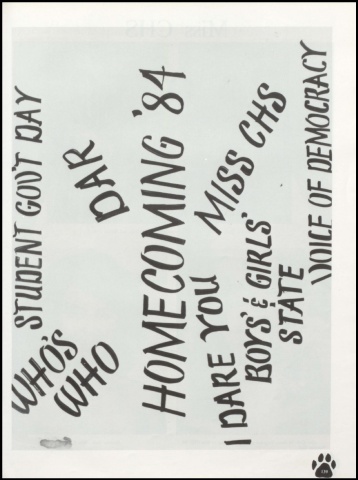 STUDENT GOV'T DAY
DAR
HOMECOMING '84
MISS CHS
VOICE OF DEMOCRACY
WHO'S
WHO
I DARE YOU
BOYS' & GIRLS'
STATE